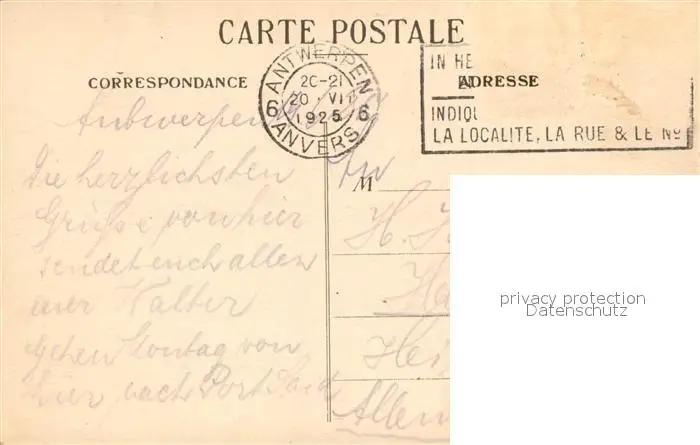 CARTE POSTALE
CORRESPONDANCE
ANTWERPEN
6 20-21 6
20 VII
1925
ANVERS
IN HE
ADRESSE
INDIQU
LA LOCALITE, LA RUE & LE No
Antwerpen
Die herzlichsten
Grüße von hier
sendet euch allen
euer Walter
gehen Sontag von
hier nach Port Said
An
M
H.
Hei
Allem
privacy protection
Datenschutz